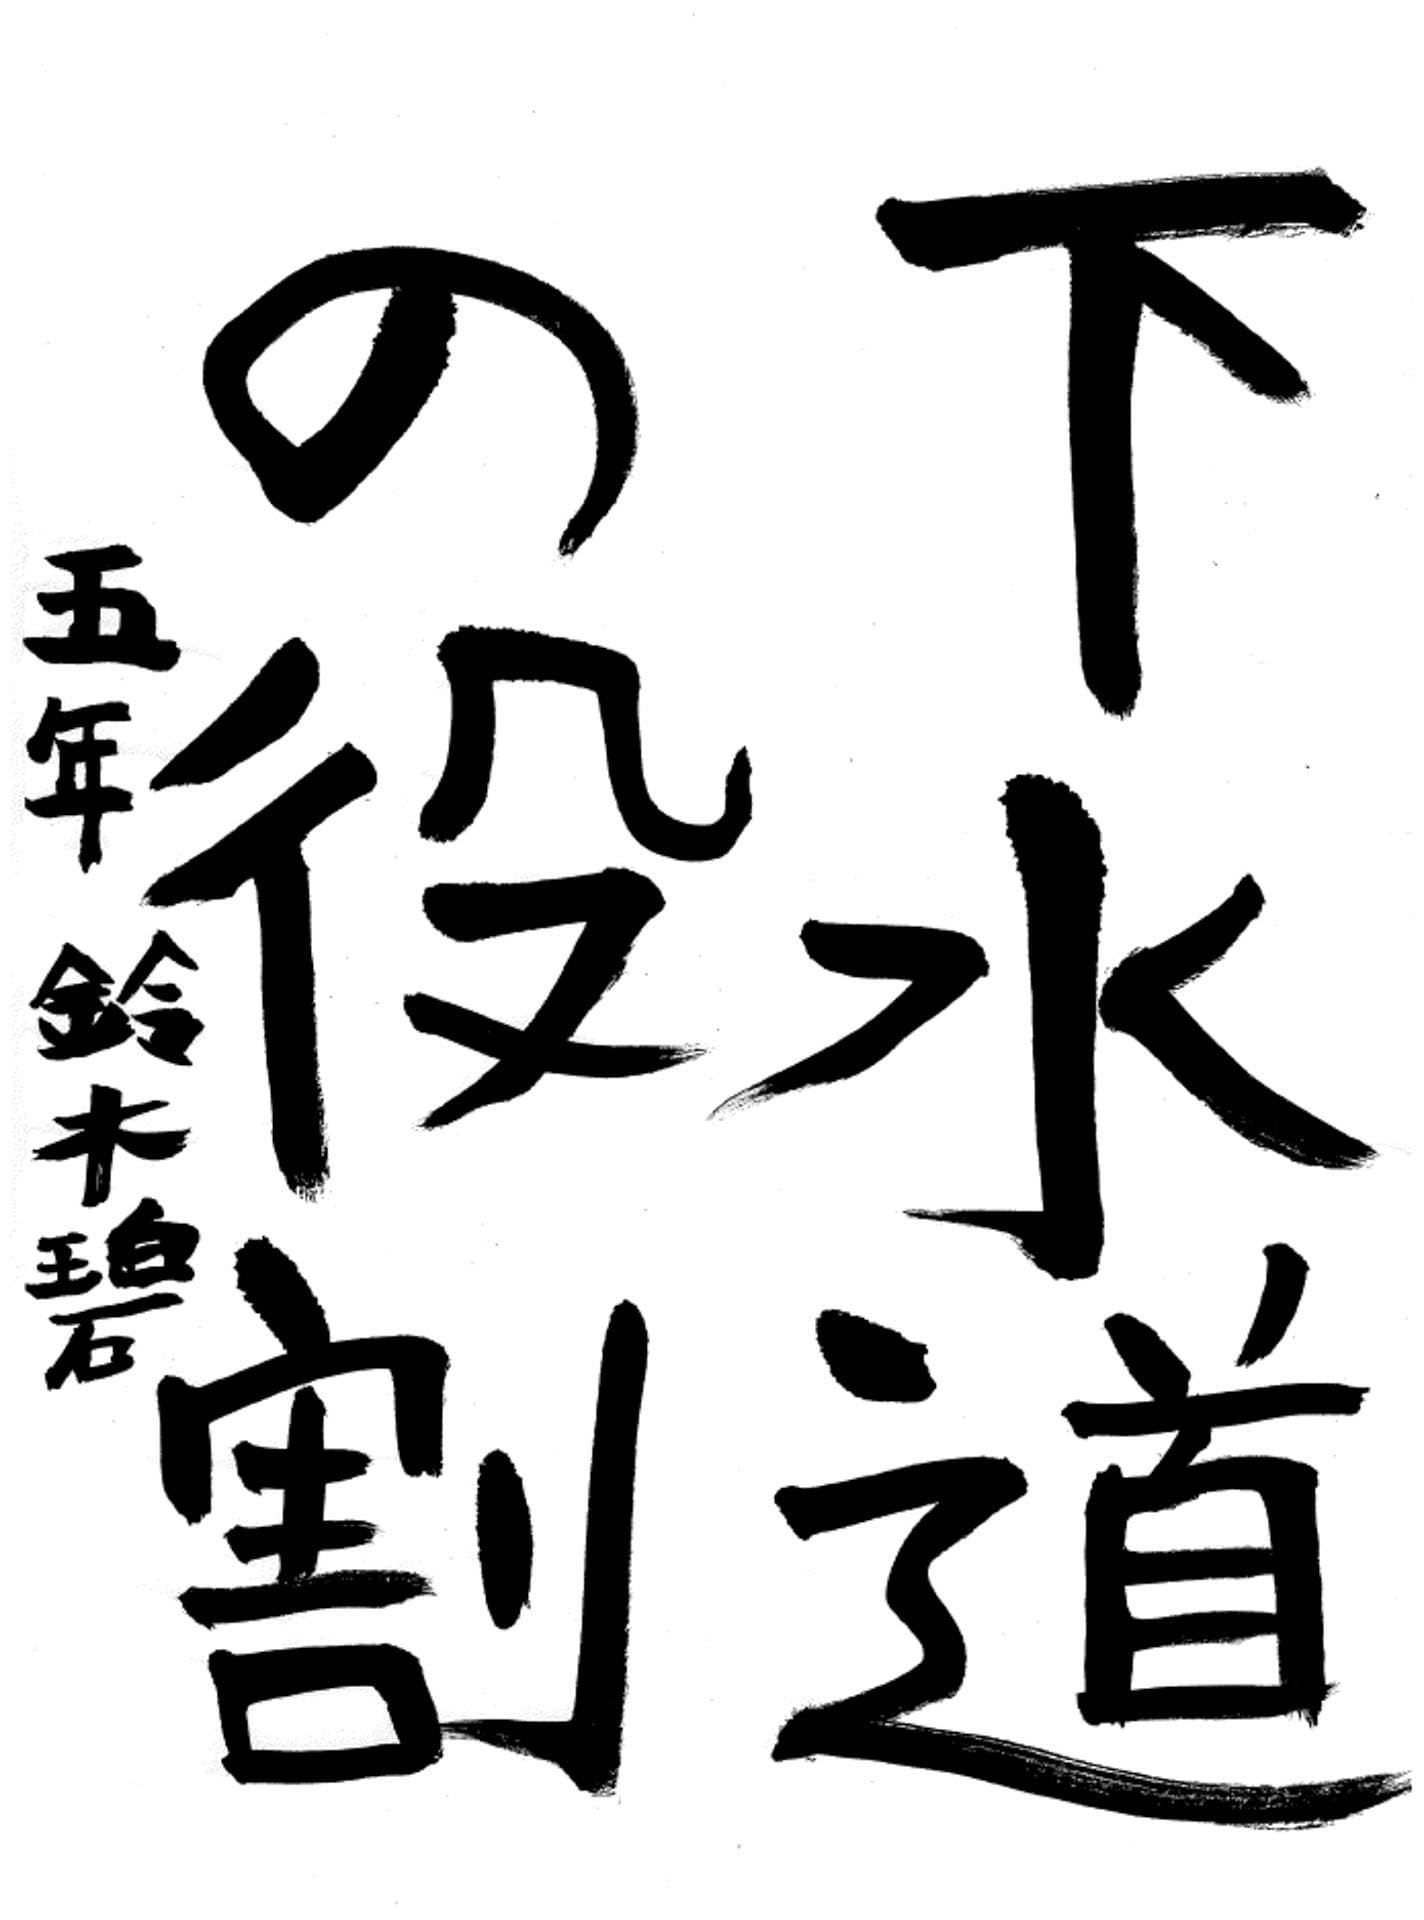 下水道
の役割
五年 鈴木碧